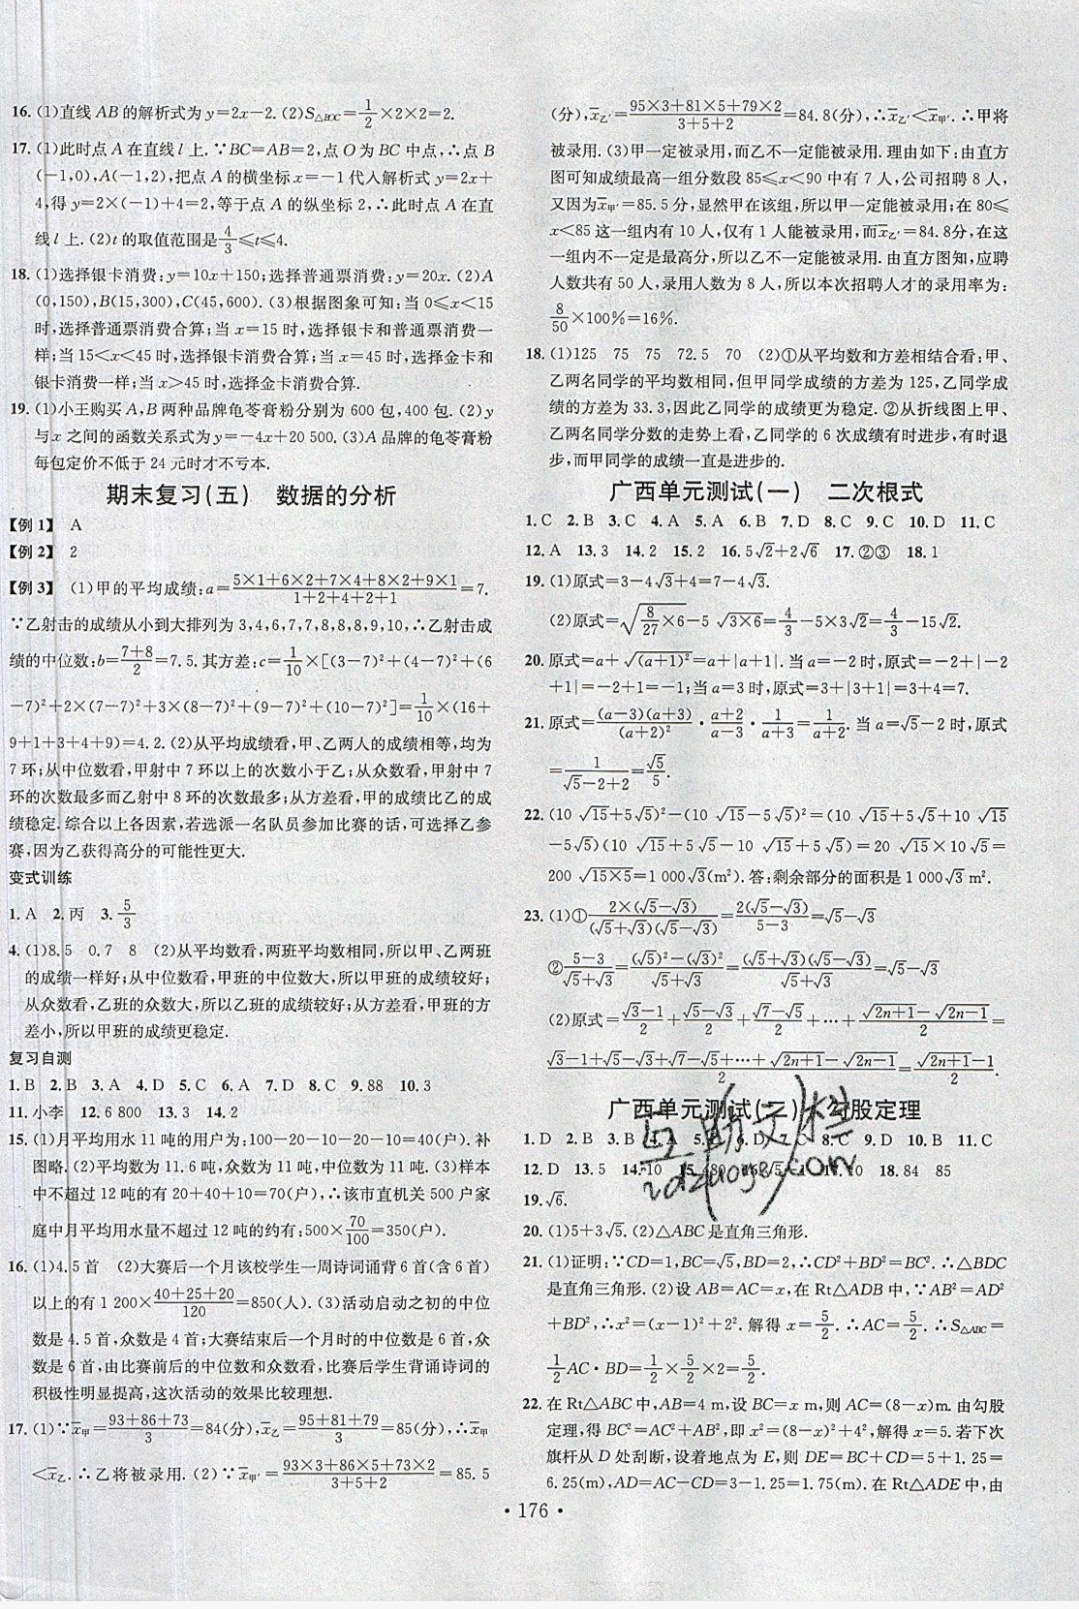 16. (1)直线 AB 的解析式为 y=2x-2. (2)S△BOC=1/2×2×2=2.
17. (1)此时点 A 在直线 l 上. ∵BC=AB=2,点 O 为 BC 中点,∴点 B
(-1,0),A(-1,2),把点 A 的横坐标 x=-1 代入解析式 y=2x+
4,得 y=2×(-1)+4=2,等于点 A 的纵坐标 2,∴此时点 A 在直
线 l 上. (2)t 的取值范围是 4/3≤t≤4.
18. (1)选择银卡消费:y=10x+150;选择普通票消费:y=20x. (2)A
(0,150),B(15,300),C(45,600). (3)根据图象可知:当 0≤x<15
时,选择普通票消费合算;当 x=15 时,选择银卡和普通票消费一
样;当 15<x<45 时,选择银卡消费合算;当 x=45 时,选择金卡和
银卡消费一样;当 x>45 时,选择金卡消费合算.
19. (1)小王购买 A,B 两种品牌龟苓膏粉分别为 600 包,400 包. (2)y
与 x 之间的函数关系式为 y=-4x+20 500. (3)A 品牌的龟苓膏粉
每包定价不低于 24 元时才不亏本.
期末复习(五) 数据的分析
【例 1】 A
【例 2】 2
【例 3】 (1)甲的平均成绩:a=(5×1+6×2+7×4+8×2+9×1)/(1+2+4+2+1)=7.
∵乙射击的成绩从小到大排列为 3,4,6,7,7,8,8,8,9,10,∴乙射击成
绩的中位数:b=(7+8)/2=7.5. 其方差:c=1/10×[(3-7)²+(4-7)²+(6
-7)²+2×(7-7)²+3×(8-7)²+(9-7)²+(10-7)²]=1/10×(16+
9+1+3+4+9)=4.2. (2)从平均成绩看,甲、乙两人的成绩相等,均为
7 环;从中位数看,甲射中 7 环以上的次数小于乙;从众数看,甲射中 7
环的次数最多而乙射中 8 环的次数最多;从方差看,甲的成绩比乙的成
绩稳定. 综合以上各因素,若选派一名队员参加比赛的话,可选择乙参
赛,因为乙获得高分的可能性更大.
变式训练
1. A 2. 丙 3. 5/3
4. (1)8.5 0.7 8 (2)从平均数看,两班平均数相同,所以甲、乙两班
的成绩一样好;从中位数看,甲班的中位数大,所以甲班的成绩较好;
从众数看,乙班的众数大,所以乙班的成绩较好;从方差看,甲班的方
差小,所以甲班的成绩更稳定.
复习自测
1. B 2. B 3. A 4. D 5. C 6. A 7. D 8. C 9. 88 10. 3
11. 小李 12. 6 800 13. 3 14. 2
15. (1)月平均用水 11 吨的用户为:100-20-10-20-10=40(户). 补
图略. (2)平均数为 11.6 吨,众数为 11 吨,中位数为 11 吨. (3)样本
中不超过 12 吨的有 20+40+10=70(户),∴该市直机关 500 户家
庭中月平均用水量不超过 12 吨的约有:500×70/100=350(户).
16. (1)4.5 首 (2)大赛后一个月该校学生一周诗词诵背 6 首(含 6 首)
以上的有 1 200×(40+25+20)/120=850(人). (3)活动启动之初的中位
数是 4.5 首,众数是 4 首;大赛结束后一个月时的中位数是 6 首,众
数是 6 首,由比赛前后的中位数和众数看,比赛后学生背诵诗词的
积极性明显提高,这次活动的效果比较理想.
17. (1)∵x̄甲=(93+86+73)/3=84(分),x̄乙=(95+81+79)/3=85(分),∴x̄甲
<x̄乙. ∴乙将被录用. (2)∵x̄甲′=(93×3+86×5+73×2)/(3+5+2)=85.5
(分),x̄乙′=(95×3+81×5+79×2)/(3+5+2)=84.8(分),∴x̄乙′<x̄甲′. ∴甲将
被录用. (3)甲一定被录用,而乙不一定能被录用. 理由如下:由直方
图可知成绩最高一组分数段 85≤x<90 中有 7 人,公司招聘 8 人,
又因为 x̄甲′=85.5 分,显然甲在该组,所以甲一定能被录用;在 80≤
x<85 这一组内有 10 人,仅有 1 人能被录用,而 x̄乙′=84.8分,在这
一组内不一定是最高分,所以乙不一定能被录用. 由直方图知,应聘
人数共有 50 人,录用人数为 8 人,所以本次招聘人才的录用率为:
8/50×100%=16%.
18. (1)125 75 75 72.5 70 (2)①从平均数和方差相结合看;甲、
乙两名同学的平均数相同,但甲同学成绩的方差为 125,乙同学成
绩的方差为 33.3,因此乙同学的成绩更为稳定. ②从折线图上甲、
乙两名同学分数的走势上看,乙同学的 6 次成绩有时进步,有时退
步,而甲同学的成绩一直是进步的.
广西单元测试(一) 二次根式
1. C 2. B 3. C 4. A 5. A 6. B 7. D 8. C 9. C 10. D 11. C
12. A 13. 3 14. 2 15. 2 16. 5√2+2√6 17. ②③ 18. 1
19. (1)原式=3-4√3+4=7-4√3.
(2)原式=√(8/27×6)-5√(3×6)=4/3-5×3√2=4/3-15√2.
20. 原式=a+√(a+1)²=a+|a+1|. 当 a=-2 时,原式=-2+|-2
+1|=-2+1=-1;当 a=3 时,原式=3+|3+1|=3+4=7.
21. 原式=(a-3)(a+3)/(a+2)²·(a+2)/(a-3)·1/(a+3)=1/(a+2). 当 a=√5-2 时,原式
=1/(√5-2+2)=√5/5.
22. (10√15+5√5)²-(10√15-5√5)²=(10√15+5√5+10√15
-5√5)(10√15+5√5-10√15+5√5)=20√15×10√5=
200√(15×5)=1 000√3(m²). 答:剩余部分的面积是 1 000√3 m².
23. (1)①2×(√5-√3)/(√5+√3)(√5-√3)=2(√5-√3)/(5-3)=√5-√3
②(5-3)/(√5+√3)=((√5)²-(√3)²)/(√5+√3)=(√5+√3)(√5-√3)/(√5+√3)=√5-√3
(2)原式=(√3-1)/2+(√5-√3)/2+(√7-√5)/2+…+(√(2n+1)-√(2n-1))/2=
(√3-1+√5-√3+√7-√5+…+√(2n+1)-√(2n-1))/2=(√(2n+1)-1)/2.
广西单元测试(二) 勾股定理
1. D 2. B 3. B 4. A 5. A 6. D 7. C 8. C 9. D 10. B 11. C
12. D 13. 5 14. 10 17. 10 18. 84 85
19. √6.
20. (1)5+3√5. (2)△ABC 是直角三角形.
21. (1)证明:∵CD=1,BC=√5,BD=2,∴CD²+BD²=BC². ∴△BDC
是直角三角形. (2)设 AB=AC=x,在 Rt△ADB 中,∵AB²=AD²
+BD²,∴x²=(x-1)²+2². 解得 x=5/2. ∴AC=5/2. ∴S△ABC=
1/2AC·BD=1/2×5/2×2=5/2.
22. 在 Rt△ABC 中,AB=4 m,设 BC=x m,则 AC=(8-x)m. 由勾股
定理,得 BC²=AC²+AB²,即 x²=(8-x)²+4²,解得 x=5. 若下次
旗杆从 D 处刮断,设着地点为 E,则 DE=BC+CD=5+1.25=
6.25(m),AD=AC-CD=3-1.25=1.75(m). 在 Rt△ADE 中,由
· 176 ·